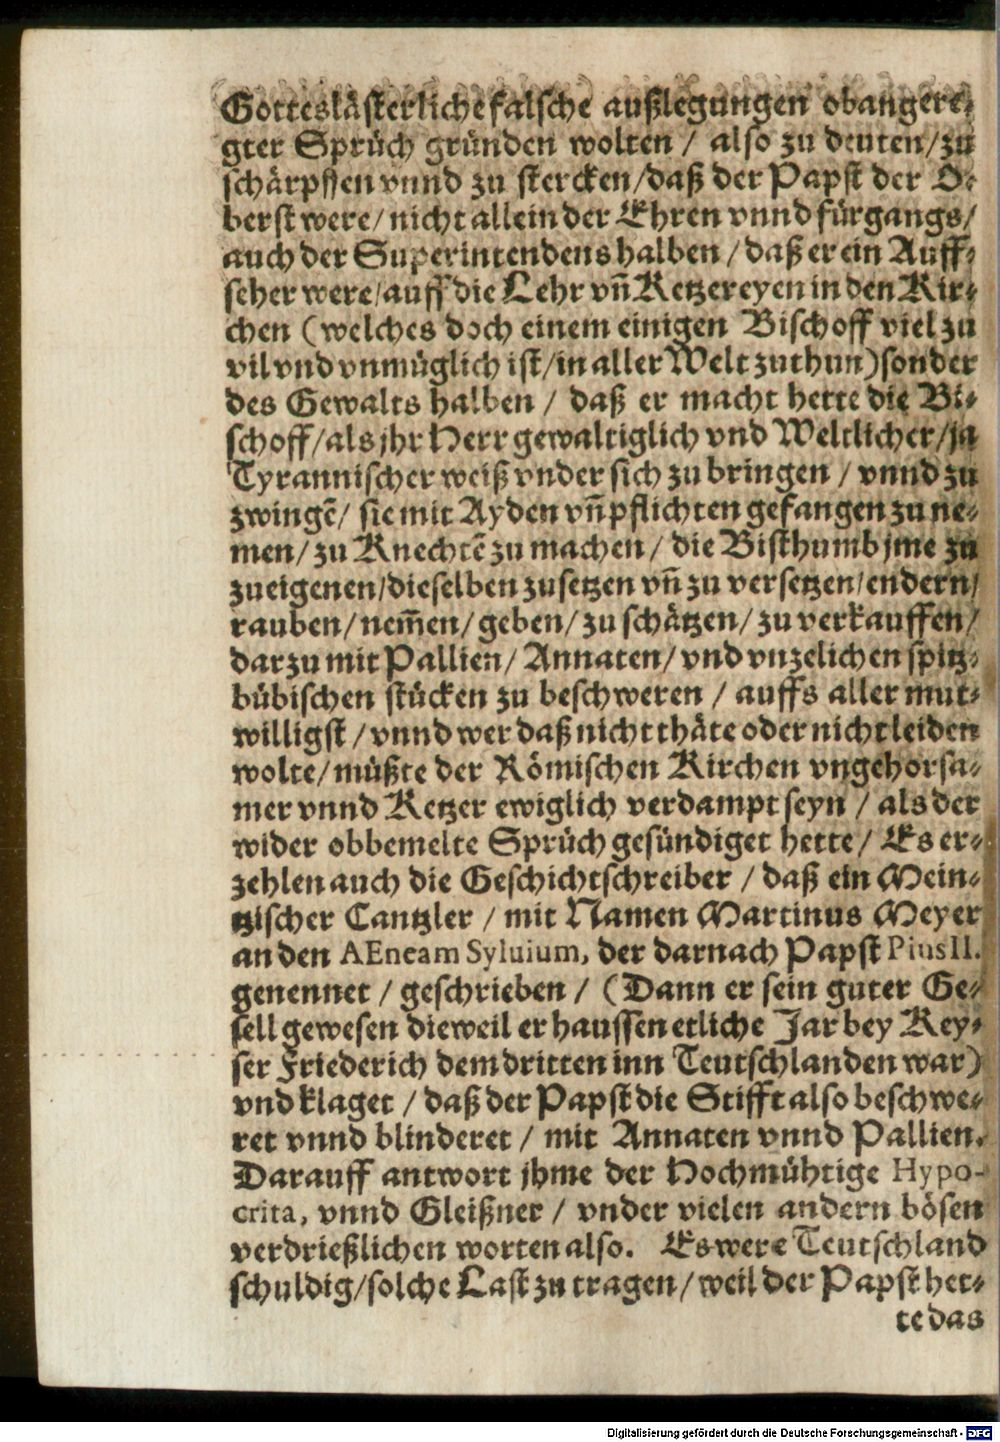 Gotteslästerliche falsche außlegungen obangere⸗
gter Sprüch gründen wolten / also zu deuten/zu
schärpffen vnnd zu stercken/daß der Papst der O⸗
berst were/nicht allein der Ehren vnnd fürgangs/
auch der Superintendens halben / daß er ein Auff⸗
seher were/auff die Lehr vn̄ Ketzereyen in den Kir⸗
chen (welches doch einem einigen Bischoff viel zu
vil vnd vnmüglich ist/in aller Welt zuthun) sonder
des Gewalts halben / daß er macht hette die Bi⸗
schoff/als jhr Herr gewaltiglich vnd Weltlicher/ja
Tyrannischer weiß vnder sich zu bringen / vnnd zu
zwingē/ sie mit Ayden vn̄ pflichten gefangen zu ne⸗
men/zu Knechtē zu machen / die Bisthumb jme zu
zueigenen/dieselben zusetzen vn̄ zu versetzen/endern/
rauben/nem̄en/geben/zu schätzen/zu verkauffen/
darzu mit Pallien/ Annaten/ vnd vnzelichen spitz⸗
bübischen stücken zu beschweren / auffs aller mut⸗
willigst / vnnd wer daß nicht thäte oder nicht leiden
wolte/müßte der Römischen Kirchen vngehorsa⸗
mer vnnd Ketzer ewiglich verdampt seyn / als der
wider obbemelte Sprüch gesündiget hette / Es er⸗
zehlen auch die Geschichtschreiber / daß ein Mein⸗
tzischer Cantzler / mit Namen Martinus Meyer
an den AEneam Syluium, der darnach Papst Pius II.
genennet / geschrieben / (Dann er sein guter Ge⸗
sell gewesen dieweil er haussen etliche Jar bey Key⸗
ser Friederich dem dritten inn Teutschlanden war)
vnd klaget / daß der Papst die Stifft also beschwe⸗
ret vnnd blinderet / mit Annaten vnnd Pallien.
Darauff antwort jhme der Hochmühtige Hypo-
crita, vnnd Gleißner / vnder vielen andern bösen
verdrießlichen worten also. Es were Teutschland
schuldig/solche Last zu tragen/weil der Papst het⸗
te das
Digitalisierung gefördert durch die Deutsche Forschungsgemeinschaft - DFG